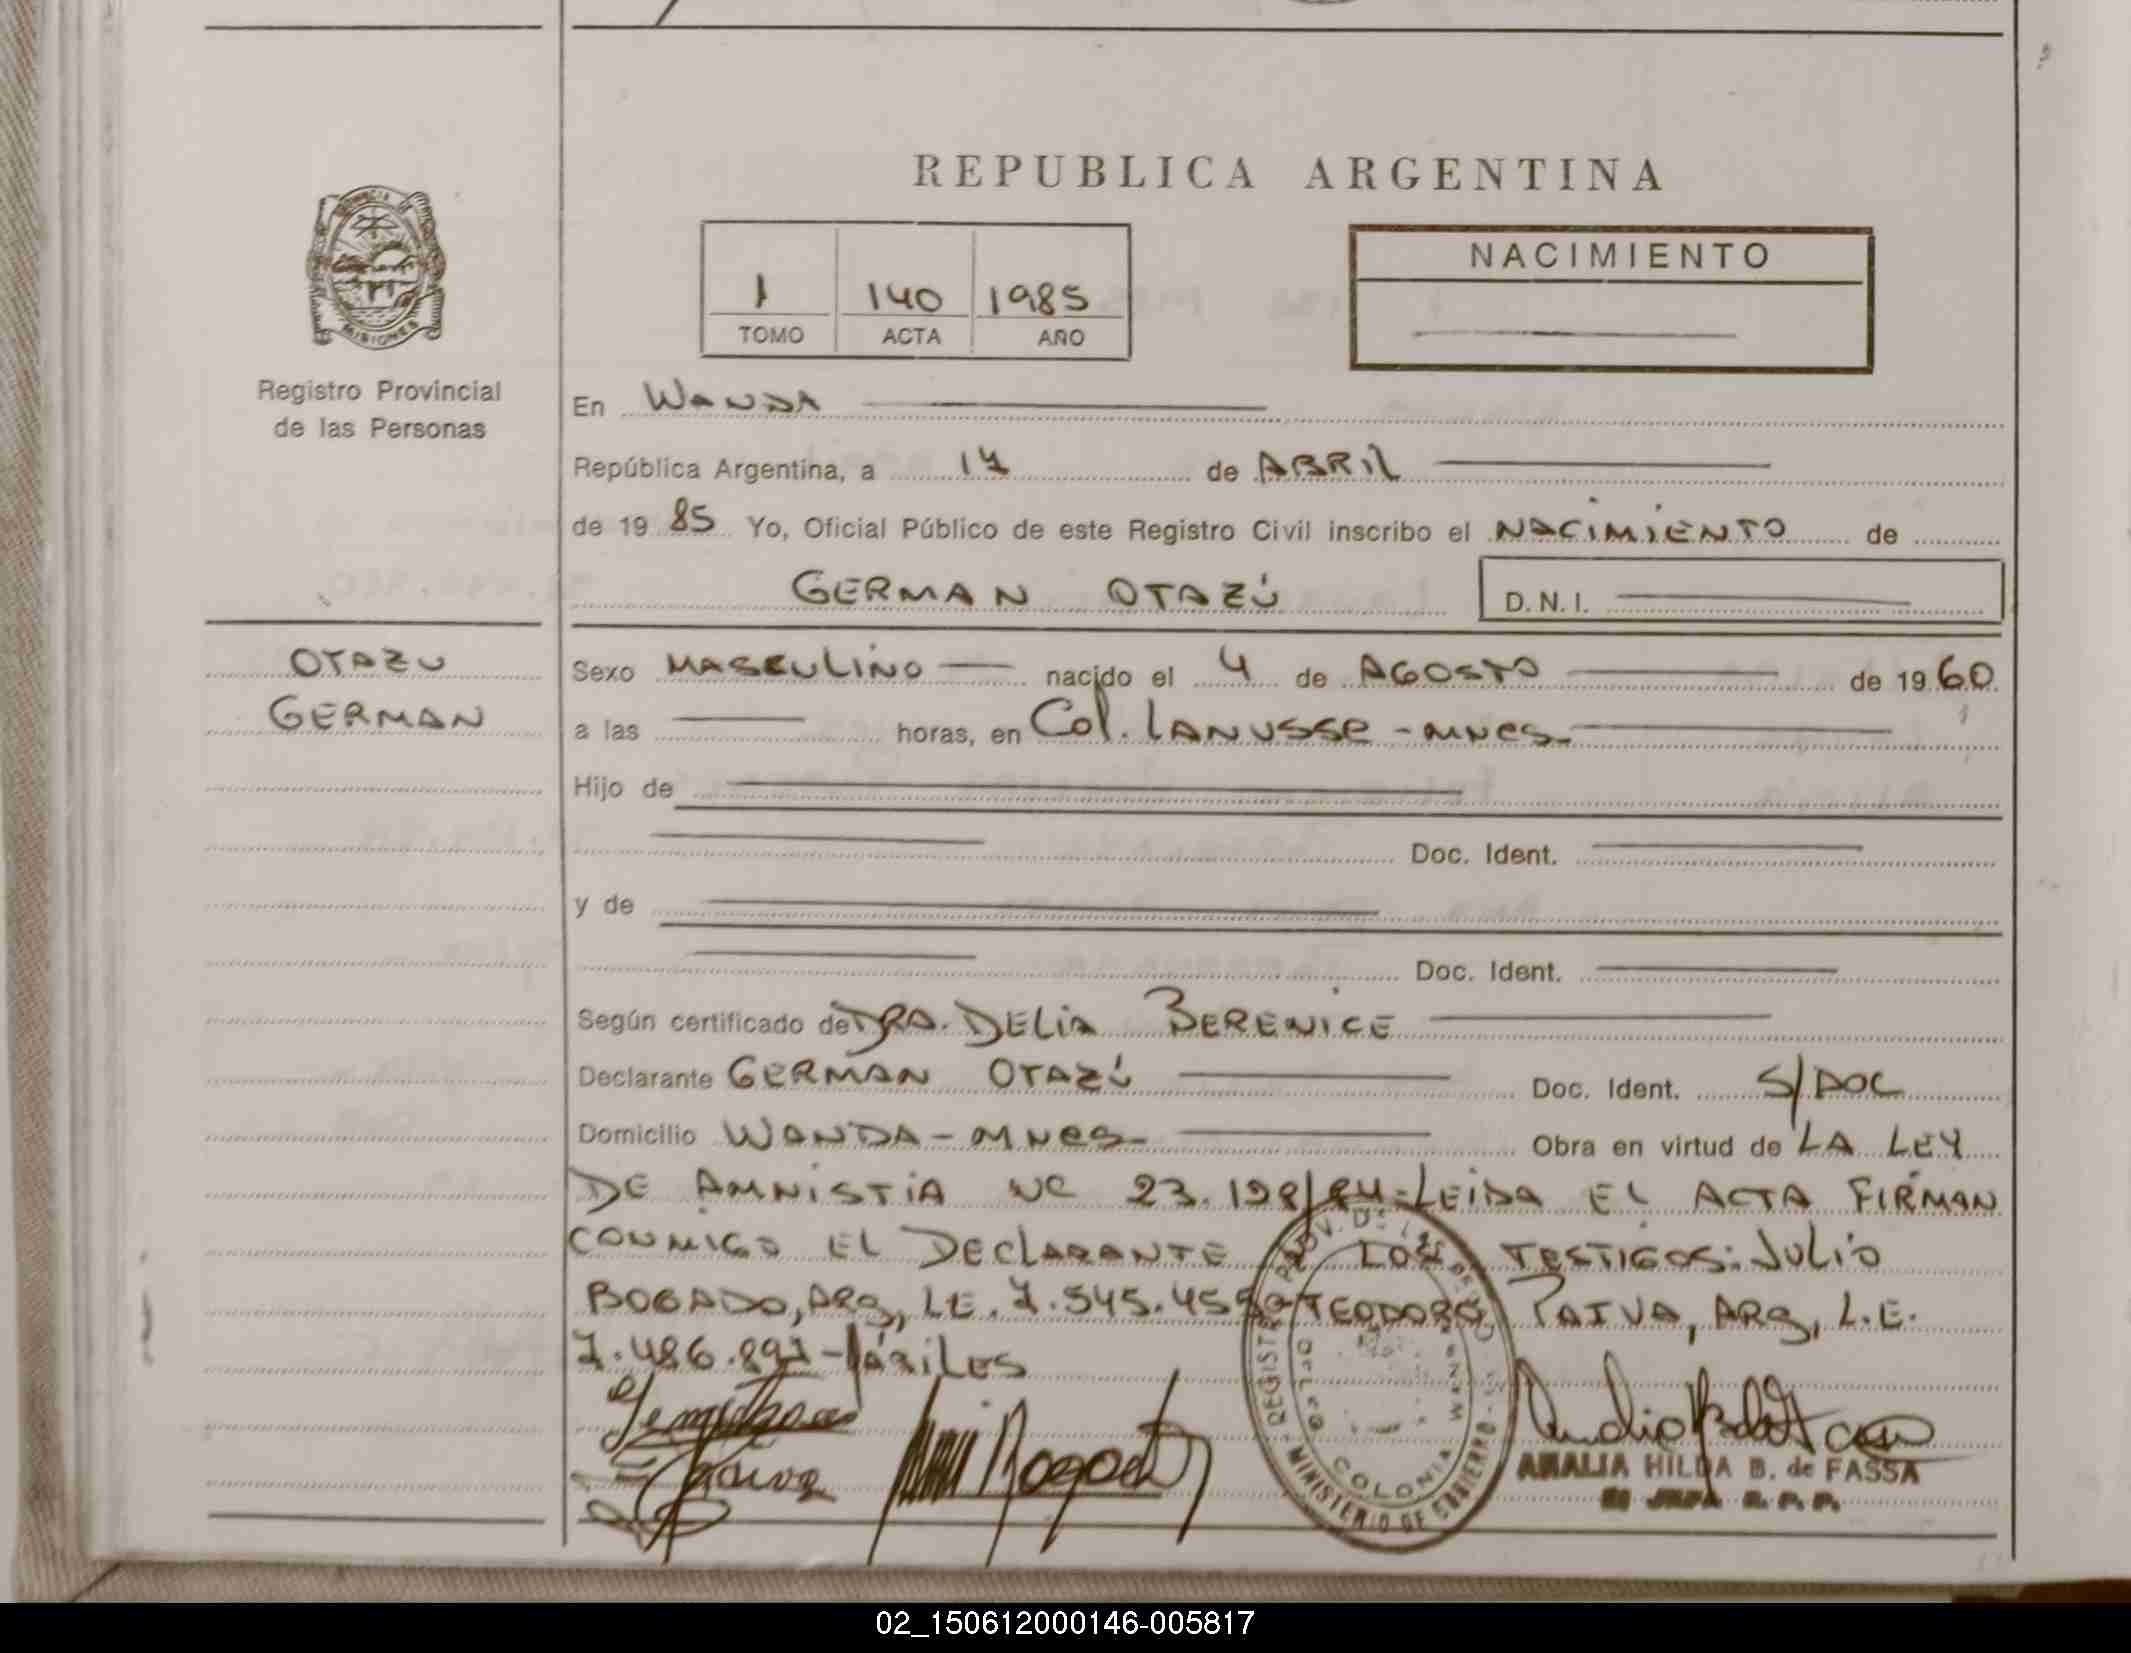 REPUBLICA ARGENTINA
PROVINCIA
MISIONES
Registro Provincial
de las Personas
1 140 1985
TOMO ACTA AÑO
NACIMIENTO
En WANDA
República Argentina, a 17 de ABRIL
de 1985 Yo, Oficial Público de este Registro Civil inscribo el NACIMIENTO de
GERMAN OTAZÚ D.N.I.
OTAZU
GERMAN
Sexo MASCULINO nacido el 4 de AGOSTO de 1960
a las horas, en Col. LANUSSE - MNES
Hijo de
Doc. Ident.
y de
Doc. Ident.
Según certificado de DRA. DELIA BERENICE
Declarante GERMAN OTAZÚ Doc. Ident. S/DOC
Domicilio WANDA - MNES - Obra en virtud de LA LEY
DE AMNISTIA 23. /84 - LEIDA EL ACTA FIRMAN
CONMIGO EL DECLARANTE LOS TESTIGOS: JULIO
BOGADO, ARG, LE. 7.545. TEODORO PAIVA, ARG, L.E.
7.486.897 -
MINISTERIO DE GOBIERNO
COLONIA WANDA
AMALIA HILDA B. de FASSA
R. P. P.
02_150612000146-005817